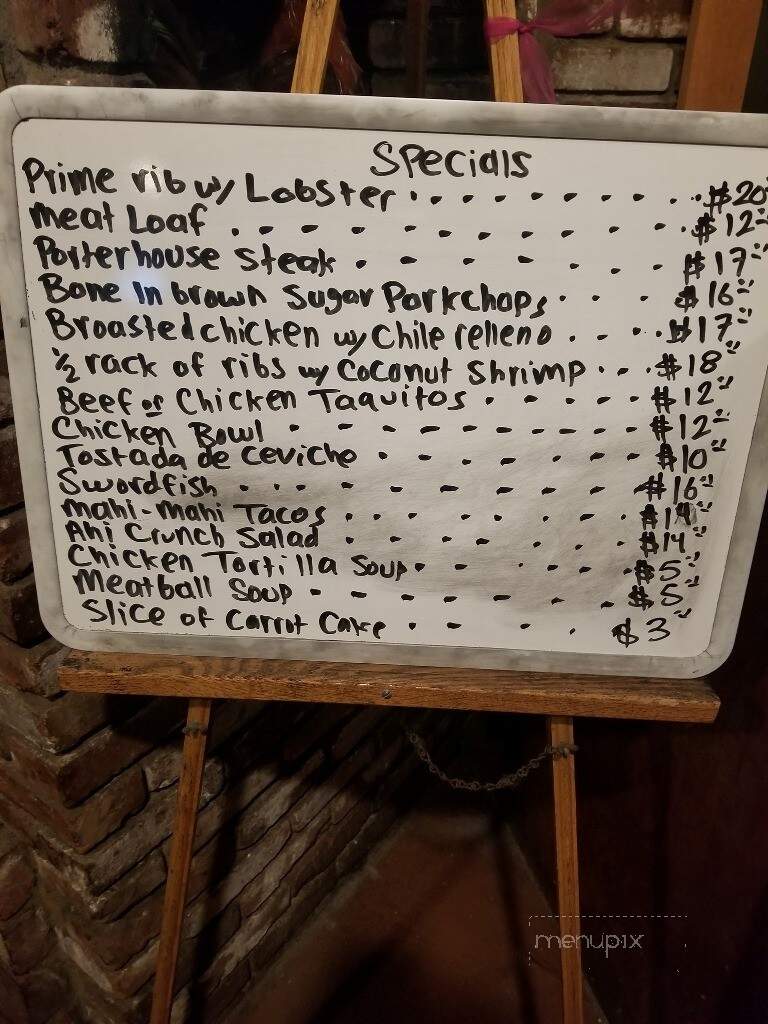 Specials
Prime rib w/ Lobster . . . . . . . . . . $20
Meat Loaf . . . . . . . . . . . $12
Porterhouse steak . . . . . . . $17
Bone In brown Sugar Porkchops . . . . $16
Broasted chicken w/ Chile relleno . . . . $17
½ rack of ribs w/ Coconut Shrimp . . . $18
Beef or Chicken Taquitos . . . . . $12
Chicken Bowl . . . . . . . . . $12
Tostada de Ceviche . . . . . . . $10
Swordfish . . . . . . . . . $16
Mahi-Mahi Tacos . . . . . . . $14
Ahi Crunch Salad . . . . . . $14
Chicken Tortilla Soup . . . . . $5
Meatball Soup . . . . . . . $5
Slice of Carrot Cake . . . . $3
menupix